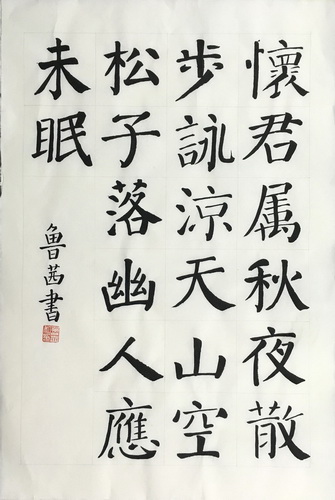 懷君属秋夜散
步詠涼天山空
松子落幽人應
未眠
魯茜書